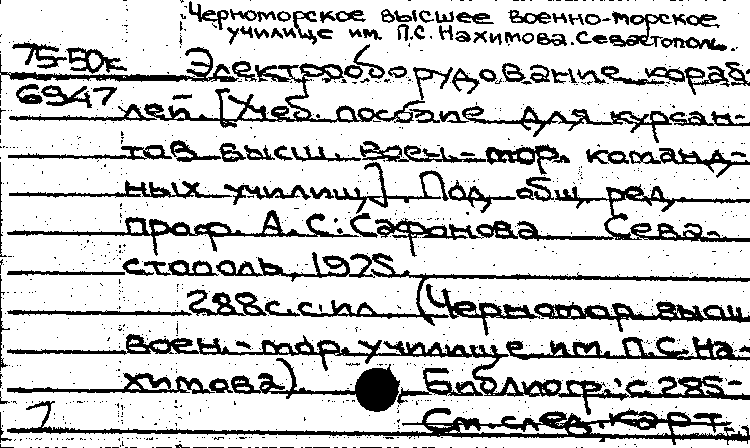 Черноморское высшее военно-морское
училище им. П.С. Нахимова. Севастополь.
75-50к
Электрооборудование кораб-
6947
лей. [Учеб. пособие для курсан-
тов высш. воен.-мор. команд-
ных училищ]. Под общ. ред.
проф. А.С. Сафонова Сева-
стополь, 1975.
288 с. с ил. (Черномор. высш.
воен.-мор. училище им. П.С. На-
химова). Библиогр.: с. 285-
См. след. карт.